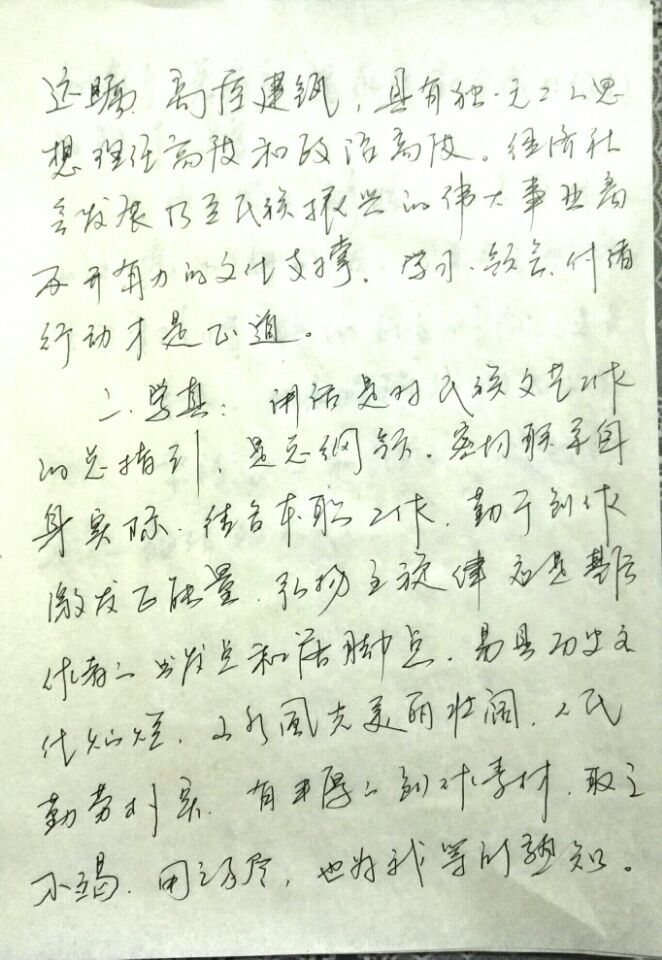 远瞩、高屋建瓴，具有独一无二的思
想理论高度和政治高度。经济社
会发展乃至民族振兴的伟大事业离
不开有力的文化支撑。学习、领会、付诸
行动才是正道。
二、学真：讲话是对民族文艺工作
的总指引，是总纲领。密切联系自
身实际，结合本职工作，勤于创作
激发正能量，弘扬主旋律应是基层
作者的出发点和落脚点。易县历史文
化灿烂，山水风光美丽壮阔，人民
勤劳朴实，有丰厚的创作素材，取之
不竭，用之不尽，也为我等所熟知。